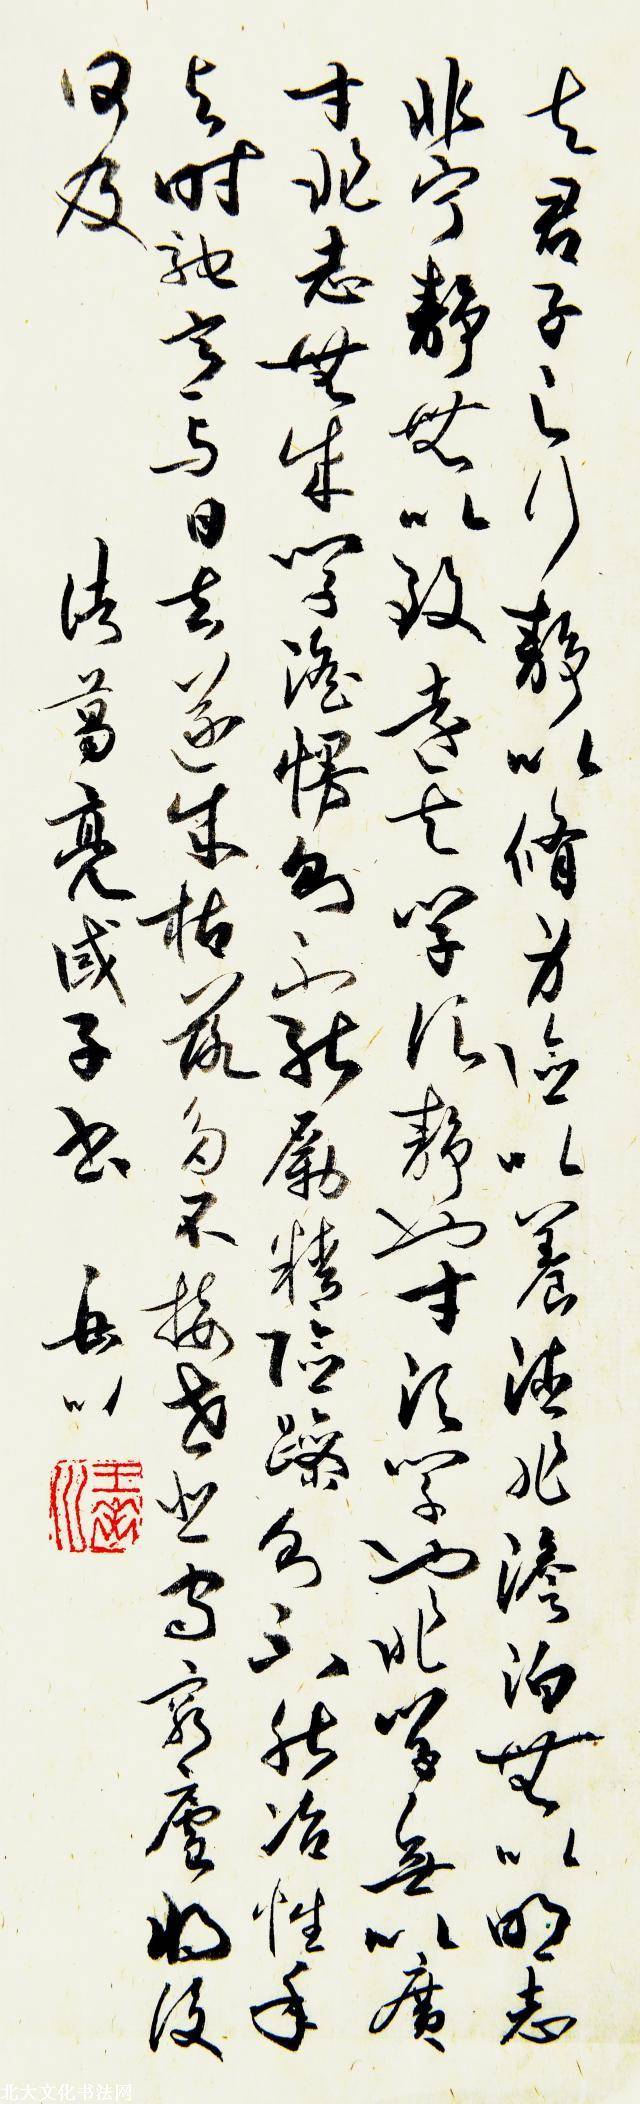 夫君子之行静以脩身儉以養德非澹泊無以明志
非宁静無以致遠夫学须静也才须学也非学無以廣
才非志無成学滛慢则不能励精险躁则不能冶性年
与时驰意与日去遂成枯落多不接世悲守窮廬将復
何及
诸葛亮诫子书 岳川
王岳川
北大文化书法网